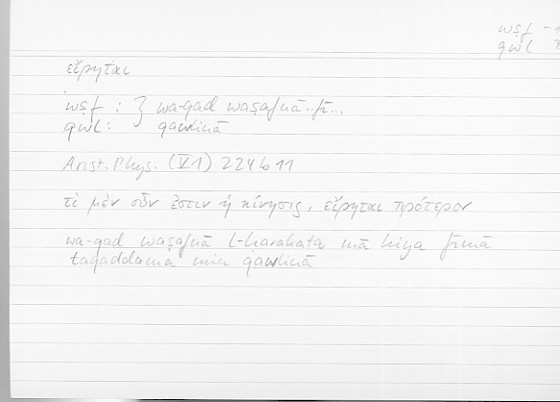 wṣf - 1
qwl
εἴρηται
wṣf : } wa-qad waṣafnā..fī...
qwl : } qawlinā
Arist. Phys. (V 1) 224b11
τί μὲν οὖν ἐστιν ἡ κίνησις, εἴρηται πρότερον
wa-qad waṣafnā l-ḥarakata mā hiya fīmā
taqaddama min qawlinā